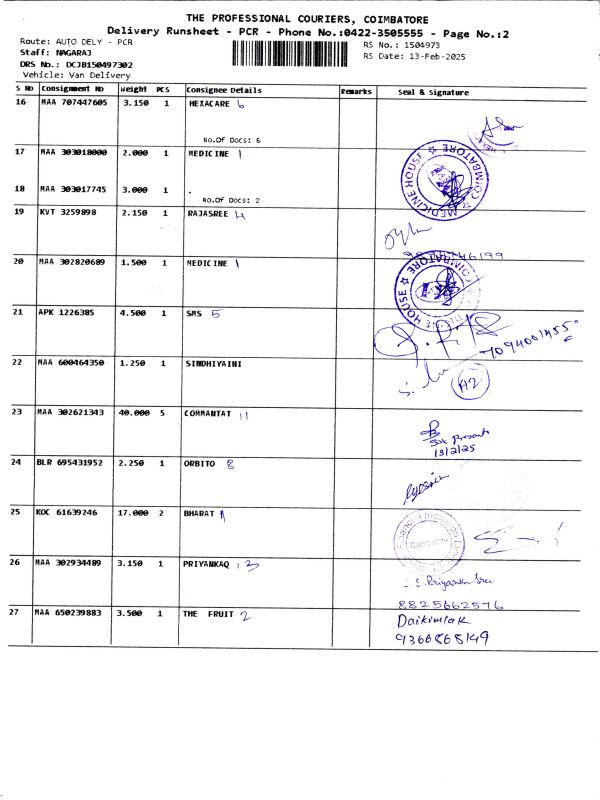 THE PROFESSIONAL COURIERS, COIMBATORE
Delivery Runsheet - PCR - Phone No.:0422-3505555 - Page No.:2
Route: AUTO DELY - PCR
RS No.: 1504973
Staff: NAGARAJ
RS Date: 13-Feb-2025
DRS No.: DCJB150497302
Vehicle: Van Delivery
S No Consignment No Weight PCS Consignee Details Remarks Seal & Signature
16 MAA 707447605 3.150 1 HEXACARE 6
No.Of Docs: 6
17 MAA 303018000 2.000 1 MEDICINE 1
MEDICINE HOUSE ☆ COIMBATORE ☆
18 MAA 303017745 3.000 1 .
No.Of Docs: 2
19 KVT 3259898 2.150 1 RAJASREE 4
20 MAA 302820689 1.500 1 MEDICINE 1
21 APK 1226385 4.500 1 SMS 5
22 MAA 600464350 1.250 1 SINDHIYAINI
A2
23 MAA 302621343 40.000 5 COMMANTAT 11
13/2/25
24 BLR 695431952 2.250 1 ORBITO 8
25 KOC 61639246 17.000 2 BHARAT
26 MAA 302934489 3.150 1 PRIYANKAQ 3
8825662576
27 MAA 650239883 3.500 1 THE FRUIT 2
9366868149